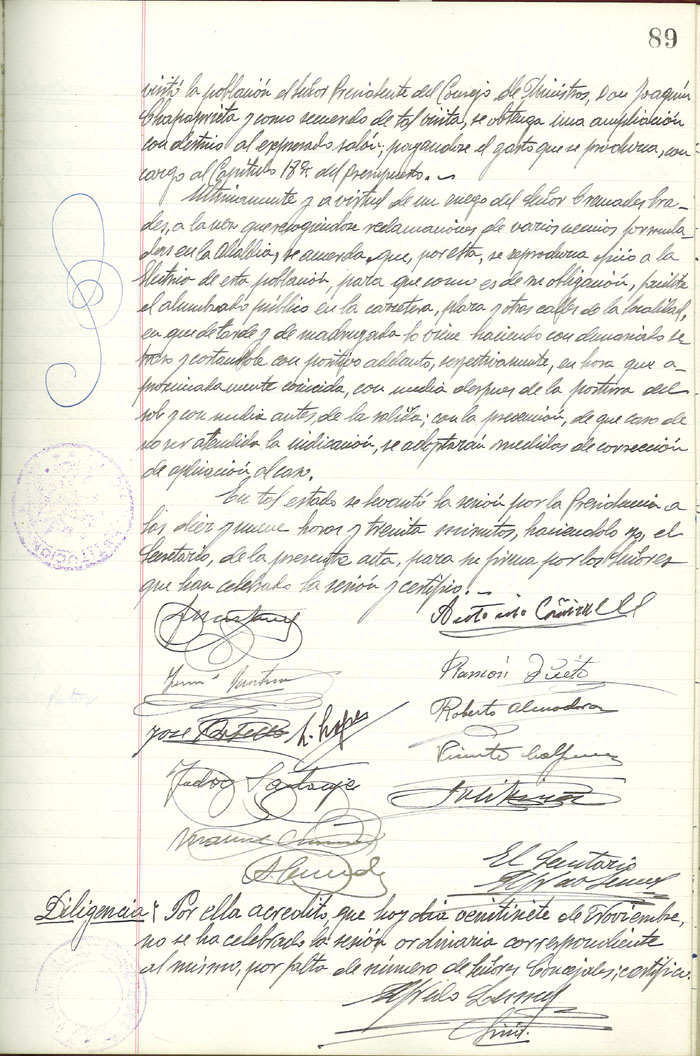 89
visitó la población el señor Presidente del Consejo de Ministros, Don Joaquín
Chapaprieta y como recuerdo de tal visita, se obtenga una ampliación
con destino al expresado salón, pagándose el gasto que se produzca, con
cargo al Capítulo 18º. del Presupuesto.
Ultimamente y a virtud de un ruego del señor
a la vez que recogiendo reclamaciones de varios vecinos formula-
das en la Alcaldía, se acuerda, que, por esta, se reproduzca oficio a la
Eléctrica de esta población, para que como es de su obligación, facilite
el alumbrado público en la carretera, plaza y otras calles de la localidad,
en que de tarde y de madrugada lo viene haciendo con demasiado re-
traso y cortándole con positivo adelanto, respectivamente, en hora que a-
proximadamente coincida, con media despues de la postura del
sol y con media antes, de la salida; con la prevención, de que caso de
no ser atendida la indicación, se adoptarán medidas de corrección
de aplicación al caso.
En tal estado se levantó la sesión por la Presidencia a
las diez y nueve horas y treinta minutos, haciéndolo yo, el
Secretario, de la presente acta, para su firma por los señores
que han celebrado la sesión y certifico.
Antonio
Ramón
Roberto Almodovar
José L. Lopes
Vicente
El Secretario
Diligencia: Por ella acredito, que hoy día veintisiete de Noviembre,
no se ha celebrado la sesión ordinaria correspondiente
al mismo, por falta de número de señores Concejales; certifico.